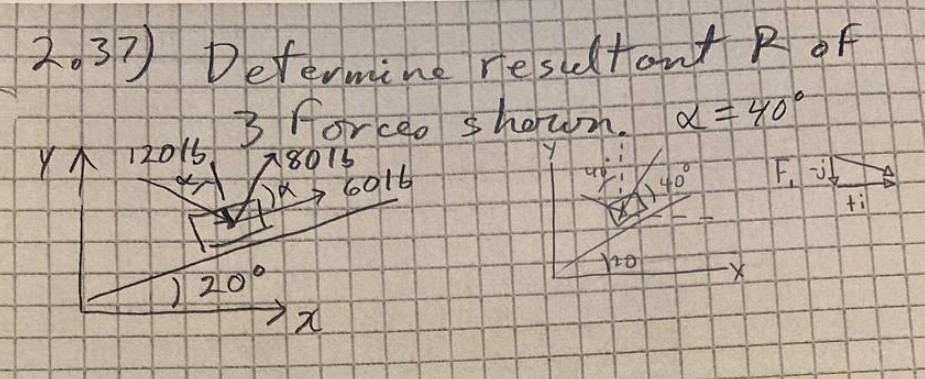 2.37) Determine resultant R of
3 forces shown. α = 40°
Y 120lb 80lb
α α 60lb
20°
x
Y
40° 40°
20
X
F, -j
+i